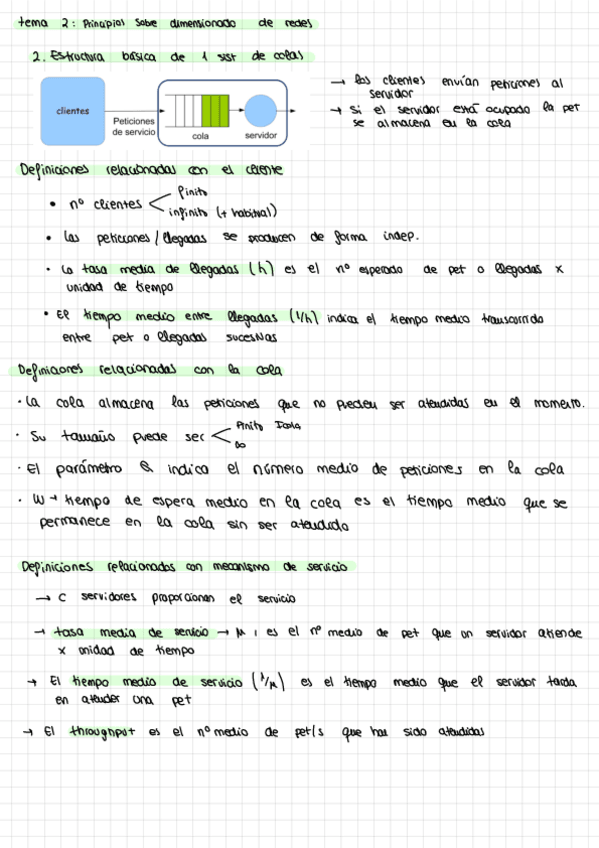 tema 2: Principios sobre dimensionado de redes
2. Estructura básica de 1 sist de colas
clientes
Peticiones
de servicio
cola
servidor
→ los clientes envían peticiones al
servidor
→ Si el servidor está ocupado la pet
se almacena en la cola
Definiciones relacionadas con el cliente
• nº clientes < finito
infinito (+ habitual)
• Las peticiones/llegadas se producen de forma indep.
• La tasa media de llegadas (λ) es el nº esperado de pet o llegadas x
unidad de tiempo
• El tiempo medio entre llegadas (1/λ) indica el tiempo medio transcurrido
entre pet o llegadas sucesivas
Definiciones relacionadas con la cola
· La cola almacena las peticiones que no pueden ser atendidas en el momento.
· Su tamaño puede ser < finito
∞
· El parámetro Q indica el número medio de peticiones en la cola
· W → tiempo de espera medio en la cola es el tiempo medio que se
permanece en la cola sin ser atendido
Definiciones relacionadas con mecanismo de servicio
→ C servidores proporcionan el servicio
→ tasa media de servicio → μ, es el nº medio de pet que un servidor atiende
x unidad de tiempo
→ El tiempo medio de servicio (1/μ) es el tiempo medio que el servidor tarda
en atender una pet
→ El throughput es el nº medio de pet/s que han sido atendidas